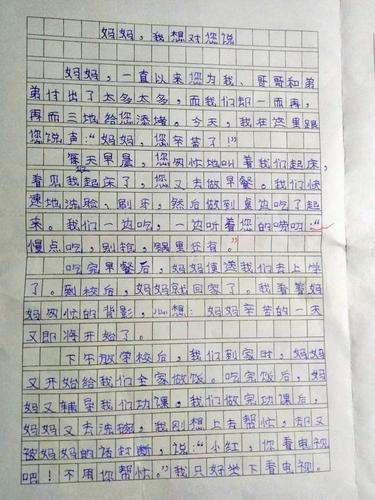 妈妈，我想对您说
妈妈，一直以来您为我、哥哥和弟
弟付出了太多太多，而我们却一而再，
再而三地给您添堵。今天，我在这里跟
您说声："妈妈，您辛苦了！"
每天早晨，您匆忙地叫着我们起床，
看见我起床了，您又去做早餐。我们快
速地洗脸、刷牙，然后做到桌边吃了起
来。我们一边吃，一边听着您的唠叨："
慢点吃，别抢，锅里还有。"
吃完早餐后，妈妈便送我们去上学
了。到校后，妈妈就回家了。我看着妈
妈匆忙的背影，心想：妈妈辛苦的一天
又即将开始了。
下午放学校后，我们到家时，妈妈
又开始给我们全家做饭。吃完饭后，妈
妈又辅导我们功课。我们做完功课后，
妈妈又去洗碗，我刚想上去帮忙，却又
被妈妈的话打断，说："小红，你看电视
吧！不用你帮忙。"我只好坐下看电视。